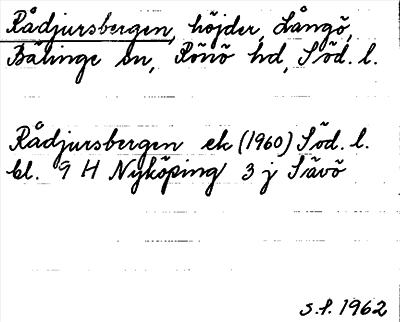 Rådjursbergen, höjder, Långö,
Bälinge sn, Rönö hd, Söd. l.
Rådjursbergen ek (1960) Söd. l.
bl. 9 H Nyköping 3 j Sävö
s.f. 1962